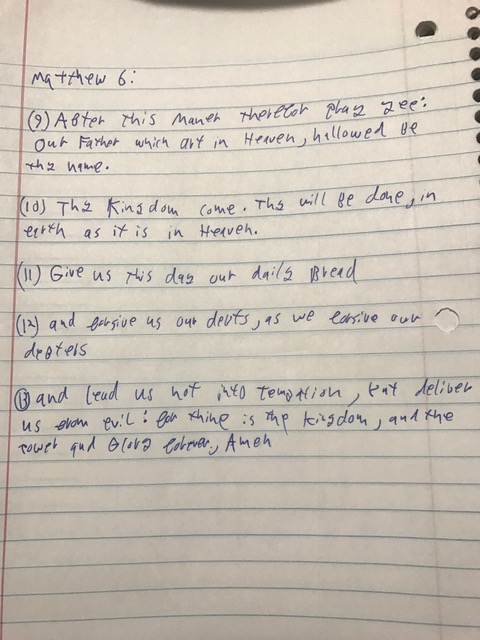 Matthew 6:
(9) After this maner therefor pray yee:
Our Father which art in Heaven, hallowed be
thy name.
(10) Thy Kingdom come. Thy will be done, in
earth as it is in Heaven.
(11) Give us this day our daily Bread
(12) and forgive us our devts, as we forgive our
depters
(13) and lead us not into temption, but deliver
us from evil: for thine is the kingdom, and the
power and Glory forever, Amen